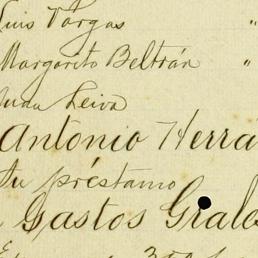 Luis Vargas "
Margarito Beltrán "
Leiva
Antonio Herrá
Su préstamo
Gastos Grales